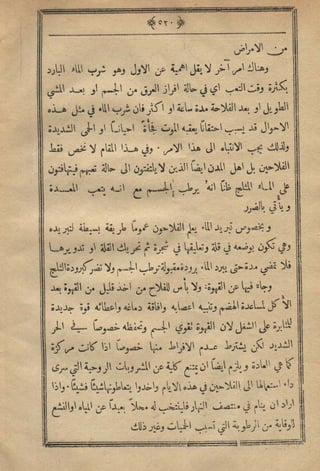 ﴿٥٢٠﴾
من الامراض
وهناك امر آخر لا يقل اهمية عن الاول وهو شرب الماء البارد
بكثرة وقت التعب اي في حالة افراز العرق من الجسم او بعد المشي
الطويل او بعد الفلاحة مدة ساعة او اكثر فان شرب الماء في مثل هذه
الاحوال قد يسبب احتقانا يعقبه الموت فجأة احيانا او الحمى الشديدة
ولذلك يجب الانتباه الى هذا الامر. وفي هذا المقام لا نخص فقط
الفلاحين بل اهل المدن ايضا الذين لا يلتفتون الى حالة تعبهم فيتهافتون
على الماء المثلج ظنا انه يرطب الجسم مع انه يتعب المعدة
ويأتي بالضرر
وبخصوص تبريد الماء يعلم الفلاحون عموما طريقة بسيطة لتبريده
وهي تكون بوضعه في قلة وتعليقها في شجرة ثم تحريك القلة او تدويرها
فلا تمضي مدة حتى يبرد الماء برودة مقبولة ترطب الجسم ولا تضر كبرودة الثلج
وجاء فيها عن القهوة: ولا بأس للفلاح من اخذ قليل من القهوة بعد
الأكل لمساعدة الهضم وتنبيه اعصابه وافاقة دماغه واعطائه قوة جديدة
للمثابرة على الشغل لان القهوة تقوي الجسم وتحفظه خصوصا في الحر
الشديد لكن يشترط عدم الافراط منها خصوصا اذا كانت مركزة
كما هي العادة ويلزم ايضا ان يمتنع كلية عن المشروبات الروحية التي سرى
داء استعمالها الى الفلاحين في هذه الايام واخذوا يتعاطونها شيئا فشيئا. واذا
اراد ان ينام في منتصف النهار فلينتخب له محلا بعيدا عن المياه او النشع
لوقاية من الرطوبة التي تسبب الحميات وغير ذلك